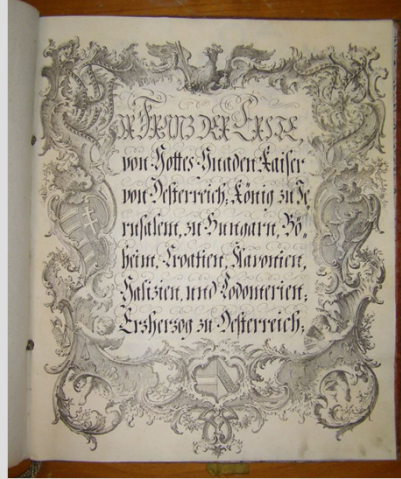 Wir Franz der Erste
von Gottes Gnaden Kaiser
von Oesterreich; König zu Je
rusalem, zu Hungarn, Bö,
heim, Croatien, Slavonien,
Galizien, und Lodomerien;
Erzherzog zu Oesterreich;